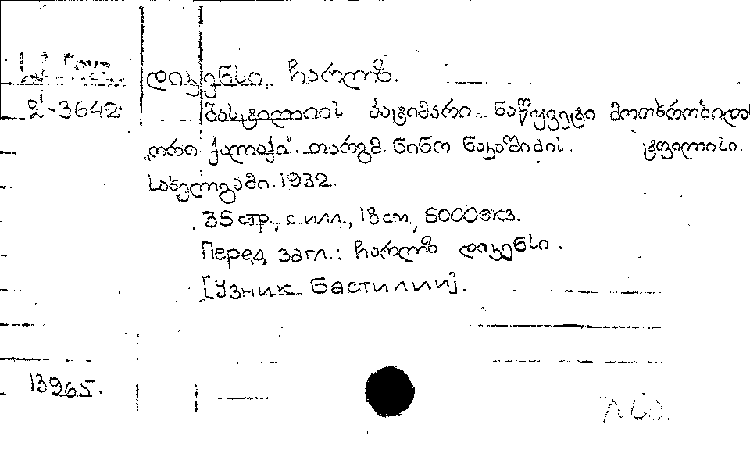 დიკენსი, ჩარლზ.
2-3642 ბასტილიის პატიმარი. ნაწყვეტი მოთხრობიდან
ორი ქალაქი. თარგმ. ნინო ნაკაშიძის. ტფილისი.
სახელგამი. 1932.
35 стр., с илл., 18 см, 5000 экз.
Перед загл.: ჩარლზ დიკენსი.
[Узник Бастилии].
13965.